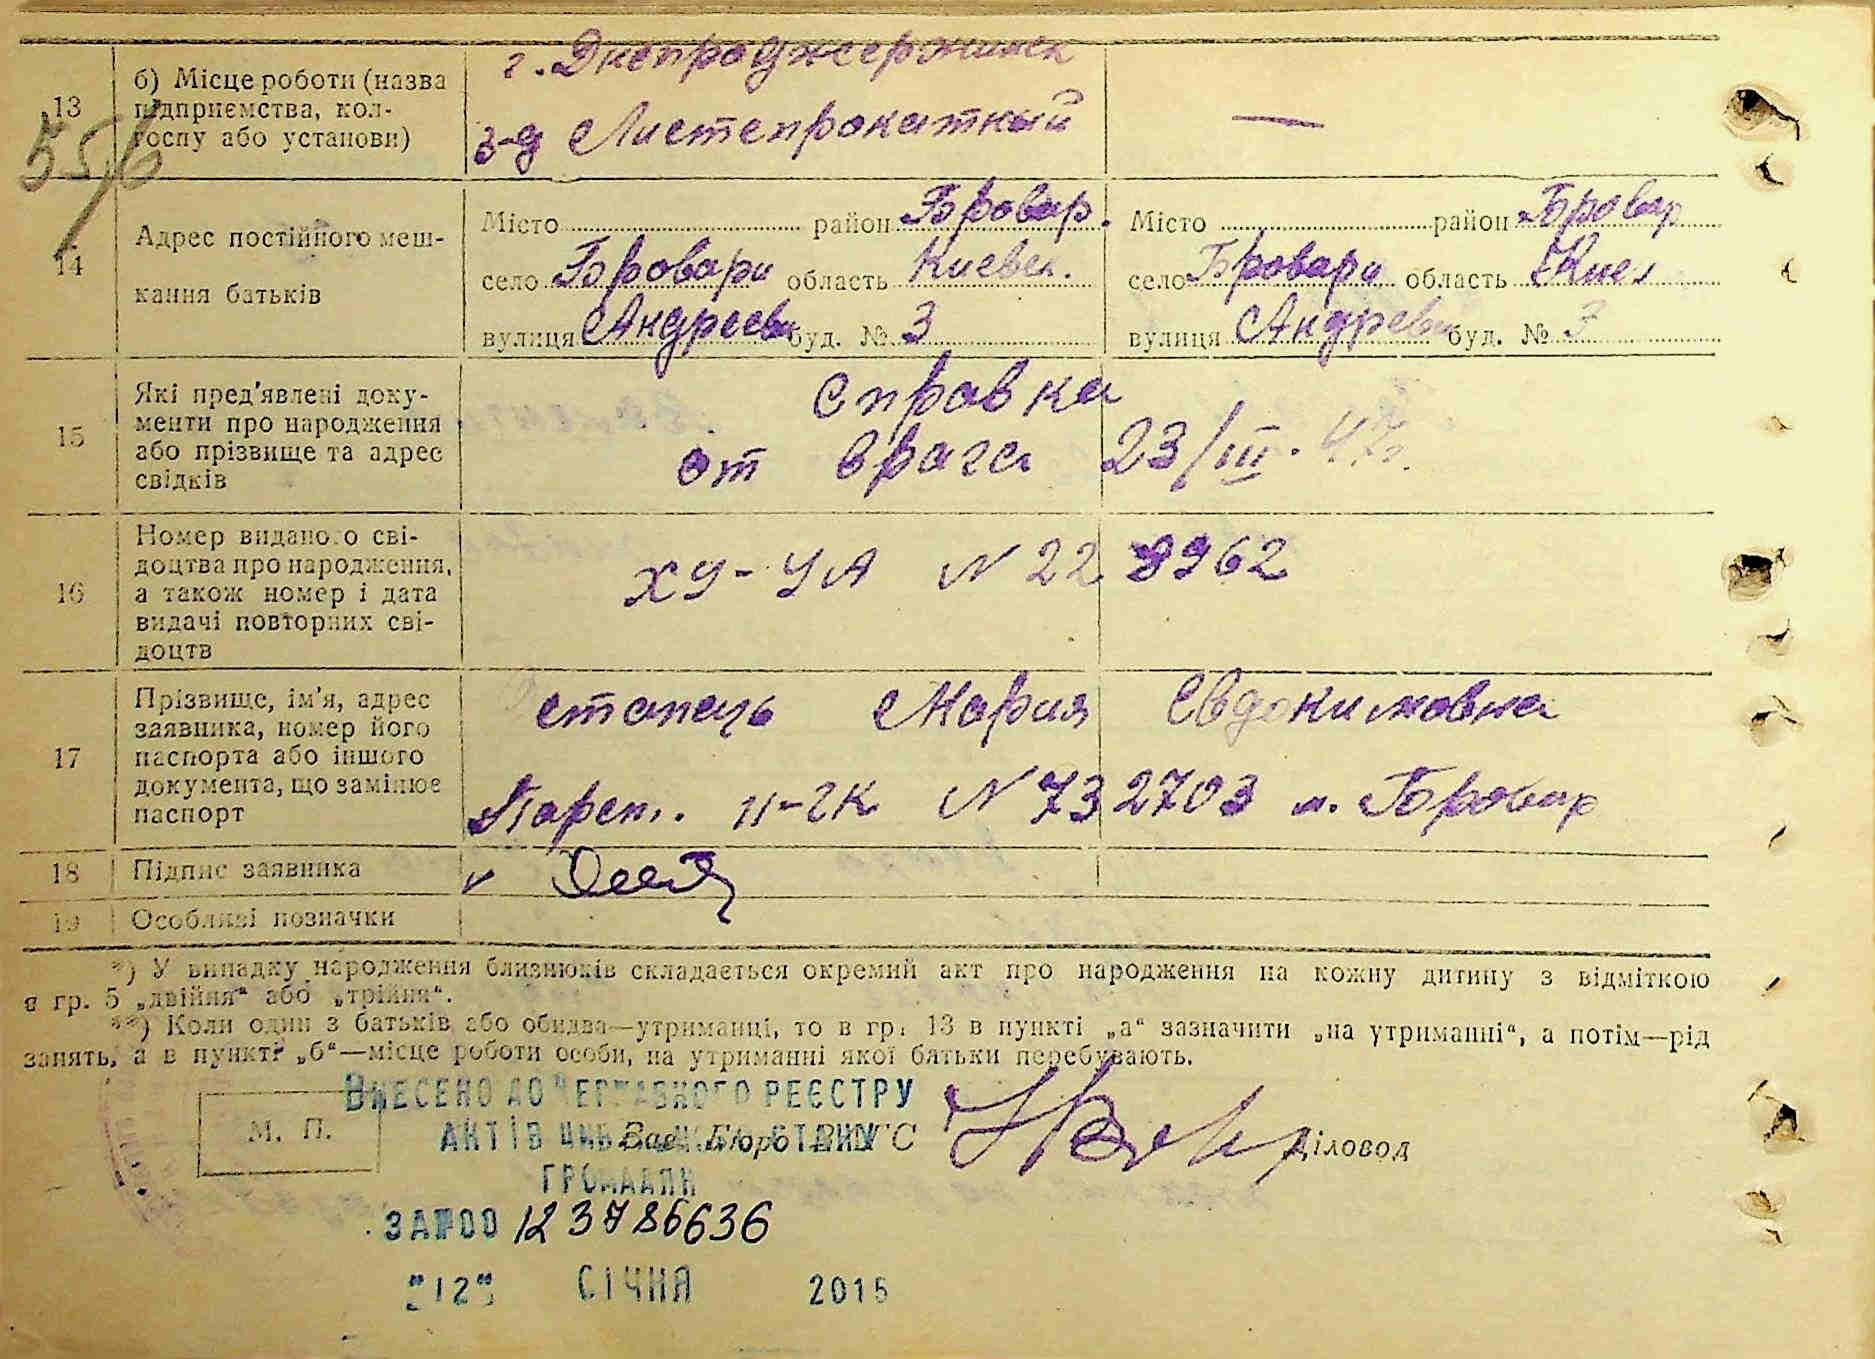 г. Днепроджержинск
13
б) Місце роботи (назва
підприємства, кол-
госпу або установи)
з-д Листепрокатный
—
55/6
14
Адрес постійного меш-
кання батьків
Місто район Бровар.
село Бровари область Киевск.
вулиця Андреев буд. № 3
Місто район Бровар
село Бровари область Киев
вулиця Андреев буд. № 3
15
Які пред'явлені доку-
менти про народження
або прізвище та адрес
свідків
Справка
от врача 23/III. 47г.
16
Номер виданого сві-
доцтва про народження,
а також номер і дата
видачі повторних сві-
доцтв
ХУ-УА N 22 8962
17
Прізвище, ім'я, адрес
заявника, номер його
паспорта або іншого
документа, що замінює
паспорт
Мария Евдокимовна
N 732703 м. Бровар
18
Підпис заявника
v
19
Особливі позначки
*) У випадку народження близнюків складається окремий акт про народження на кожну дитину з відміткою
в гр. 5 „двійня“ або „трійня“.
**) Коли один з батьків або обидва—утриманці, то в гр. 13 в пункті „а“ зазначити „на утриманні“, а потім—рід
занять, а в пункті „б“—місце роботи особи, на утриманні якої батьки перебувають.
ВНЕСЕНО ДО ДЕРЖАВНОГО РЕЄСТРУ
М. П.
АКТІВ ЦИВІЛЬНОГО СТАНУ
Зав. Бюро ЗАГС
Діловод
ГРОМАДЯН
ЗА №00 123786636
"12" СІЧНЯ 2015